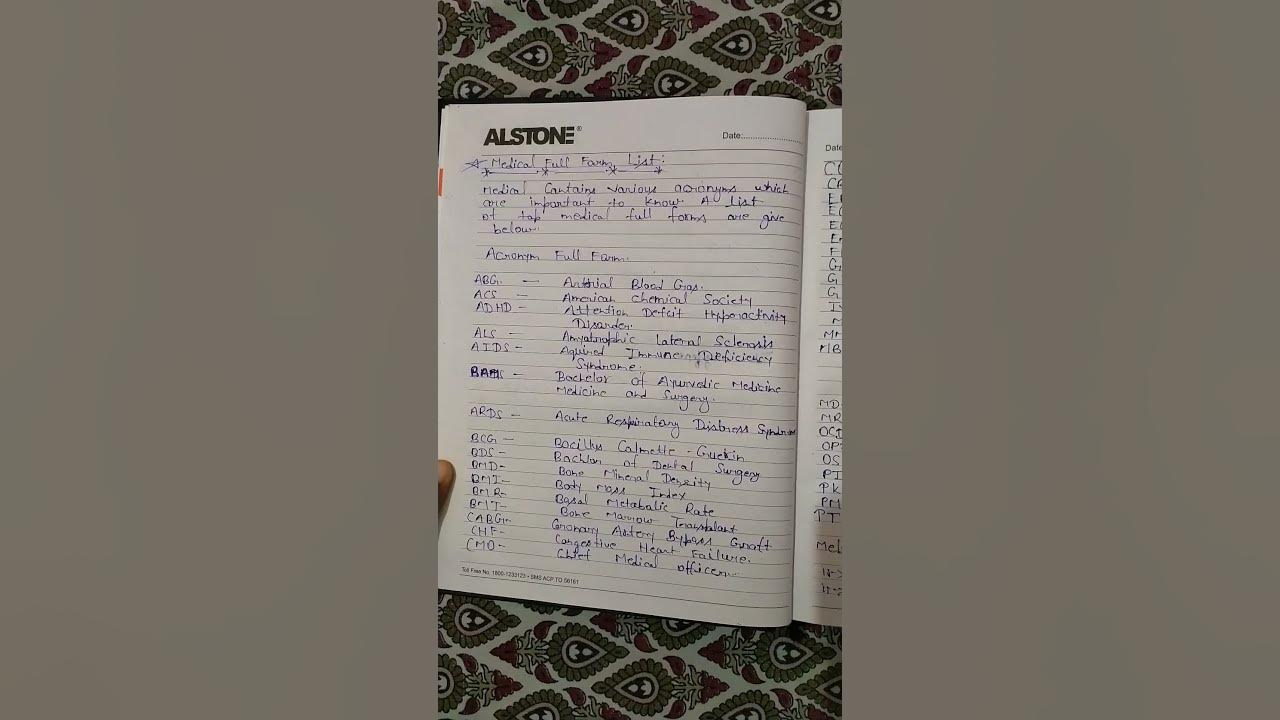 ALSTONE®
Date:
Medical Full Farm List:
Medical Contains various acronyms which
are important to know. A List
of top medical full forms are give
below.
Acronym Full Farm.
ABG — Arterial Blood Gas.
ACS — American Chemical Society
ADHD — Attention Deficit Hyperactivity
Disarder.
ALS — Amyatrophic Lateral Sclerosis
AIDS — Aquired Immuneny Deficiency
Syndrome.
BAMS — Bachelor of Ayurvedic Medicine
Medicine and Surgery.
ARDS — Acute Respiratory Distress Syndrom
BCG — Bacillys Calmette - Guerin
BDS — Bachlor of Dental Surgery
BMD — Bone Mineral Density
BMI — Body Mass Index
BMR — Basal Metabalic Rate
BMT — Bone Marrow Transplant
CABG — Cronary Astery Bypass Graft
CHF — Congestive Heart Failure.
CMO — Chief Medical officer.
Toll Free No. 1800-1233123 • SMS ACP TO 56161
Date
MD
MR
OCD
OP
OS
PT
PK
PM
PT
Mel